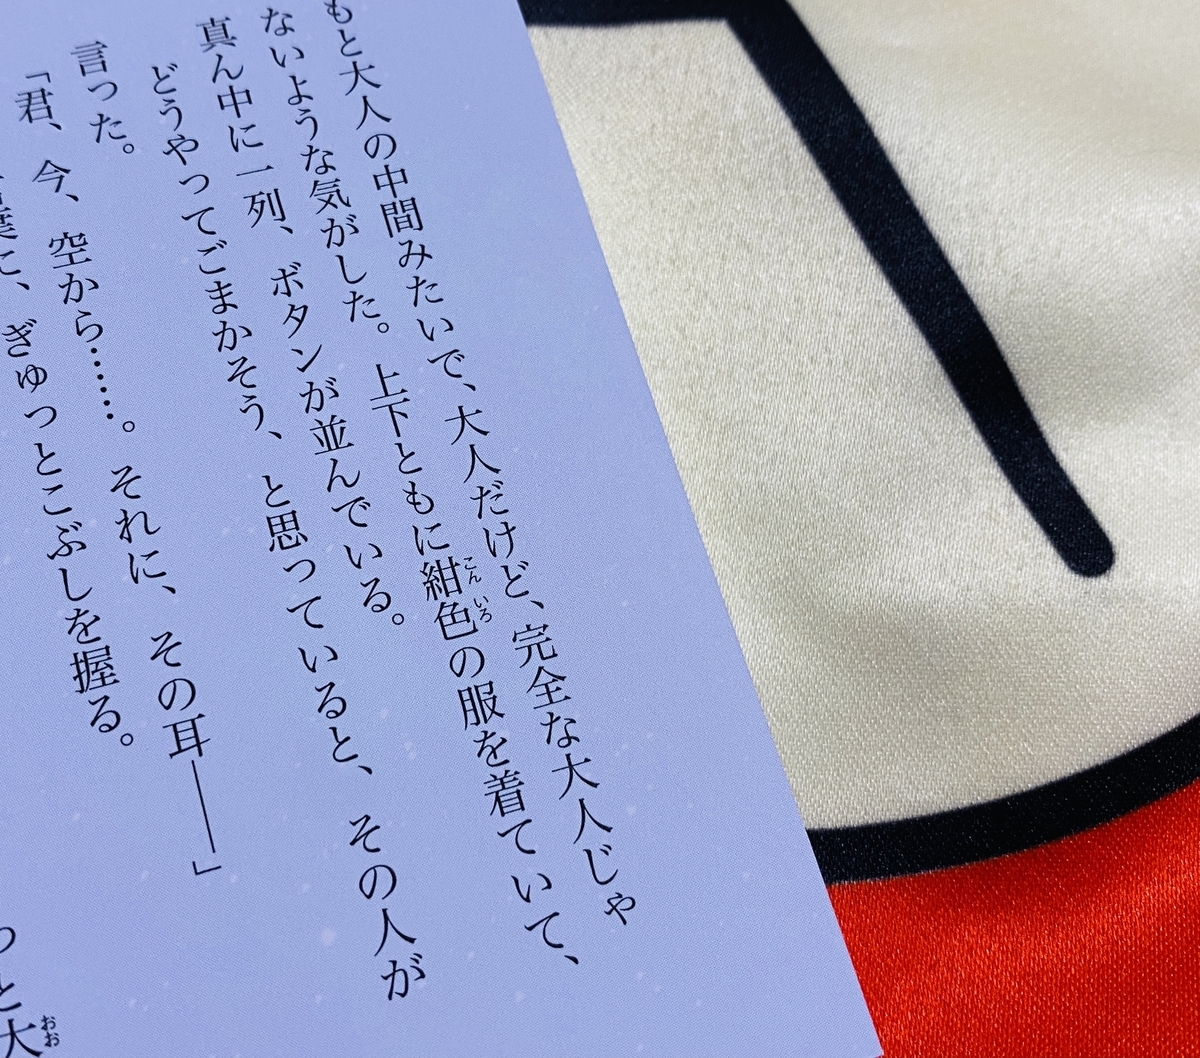 もと大人の中間みたいで、大人だけど、完全な大人じゃ
ないような気がした。上下ともに紺色の服を着ていて、
こんいろ
真ん中に一列、ボタンが並んでいる。
どうやってごまかそう、と思っていると、その人が
言った。
「君、今、空から……。それに、その耳――」
葉に、ぎゅっとこぶしを握る。
っと大
おお